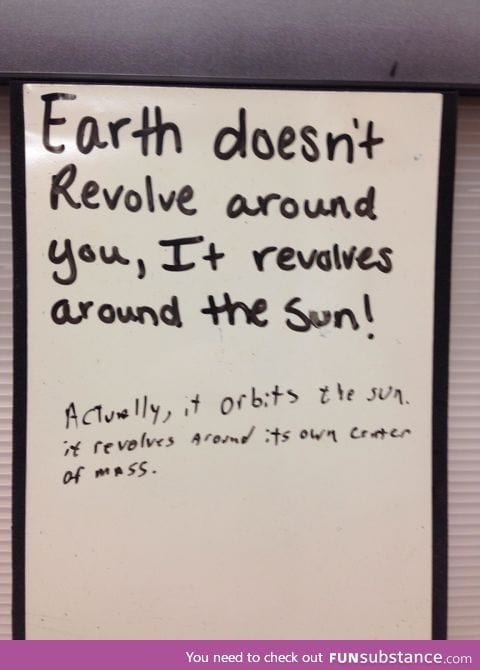 Earth doesn't
Revolve around
you, It revolves
around the Sun!
Actually, it orbits the sun.
it revolves around its own center
of mass.
You need to check out FUNsubstance.com